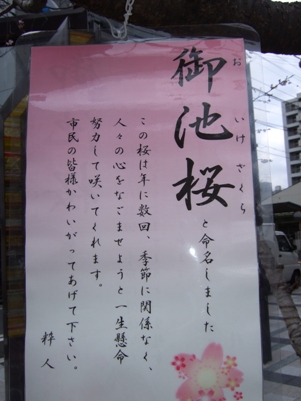 御池桜と命名しました
おいけざくら
この桜は年に数回、季節に関係なく、
人々の心をなごませようと一生懸命
努力して咲いてくれます。
市民の皆様かわいがってあげて下さい。
粋人